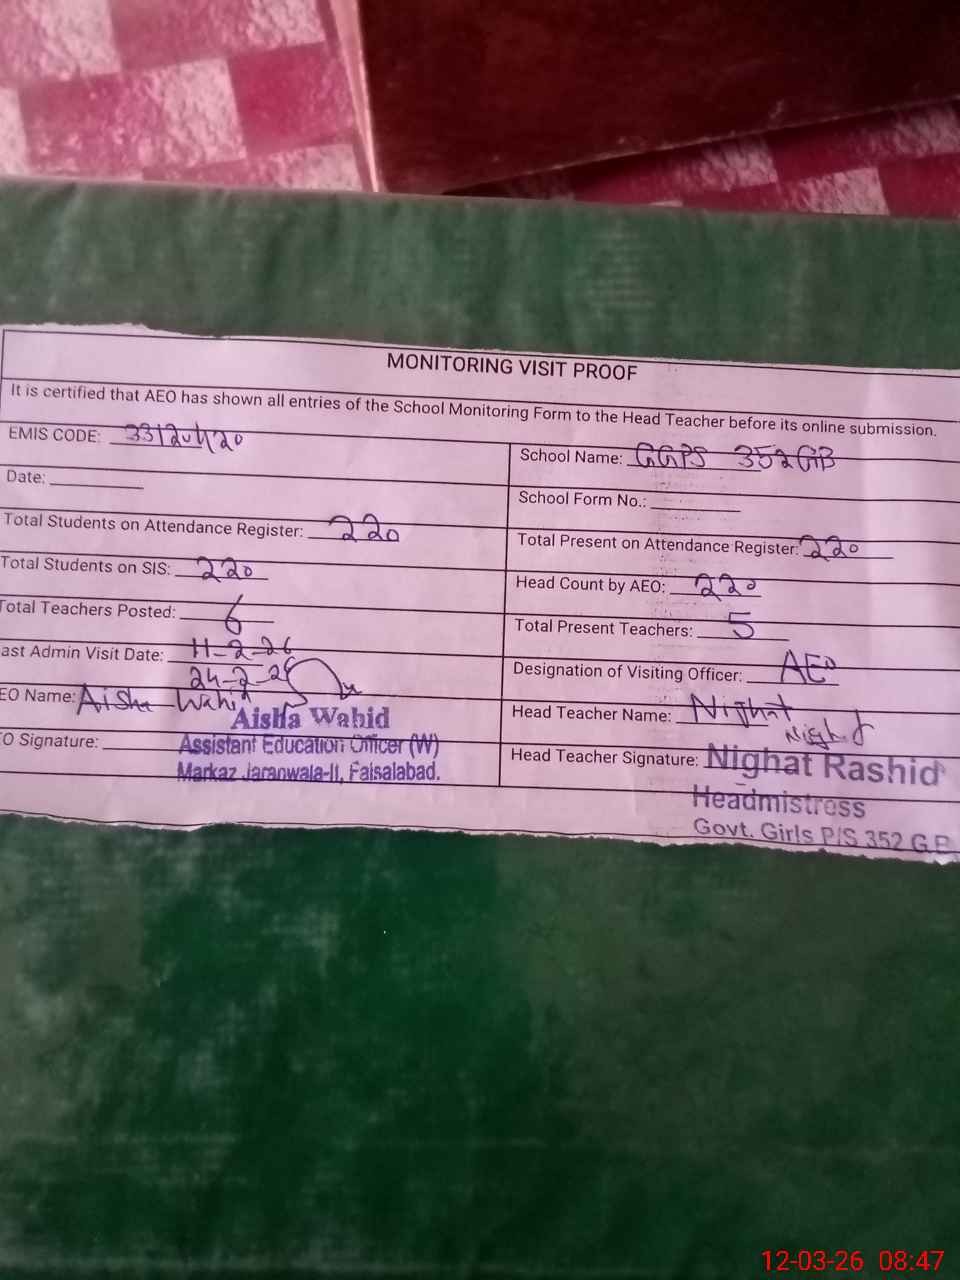 MONITORING VISIT PROOF
It is certified that AEO has shown all entries of the School Monitoring Form to the Head Teacher before its online submission.
EMIS CODE: 33120420
School Name: GGPS 352 GB
Date:
School Form No.:
Total Students on Attendance Register: 220
Total Present on Attendance Register: 220
Total Students on SIS: 220
Head Count by AEO: 220
Total Teachers Posted: 6
Total Present Teachers: 5
ast Admin Visit Date: 11-2-26
24-2-26
Designation of Visiting Officer: AEO
EO Name: Aisha Wahid
Head Teacher Name: Nighat
Nighat
EO Signature:
Aisha Wahid
Assistant Education Officer (W)
Markaz Jaranwala-II, Faisalabad.
Head Teacher Signature:
Nighat Rashid
Headmistress
Govt. Girls P/S 352 G.B
12-03-26 08:47